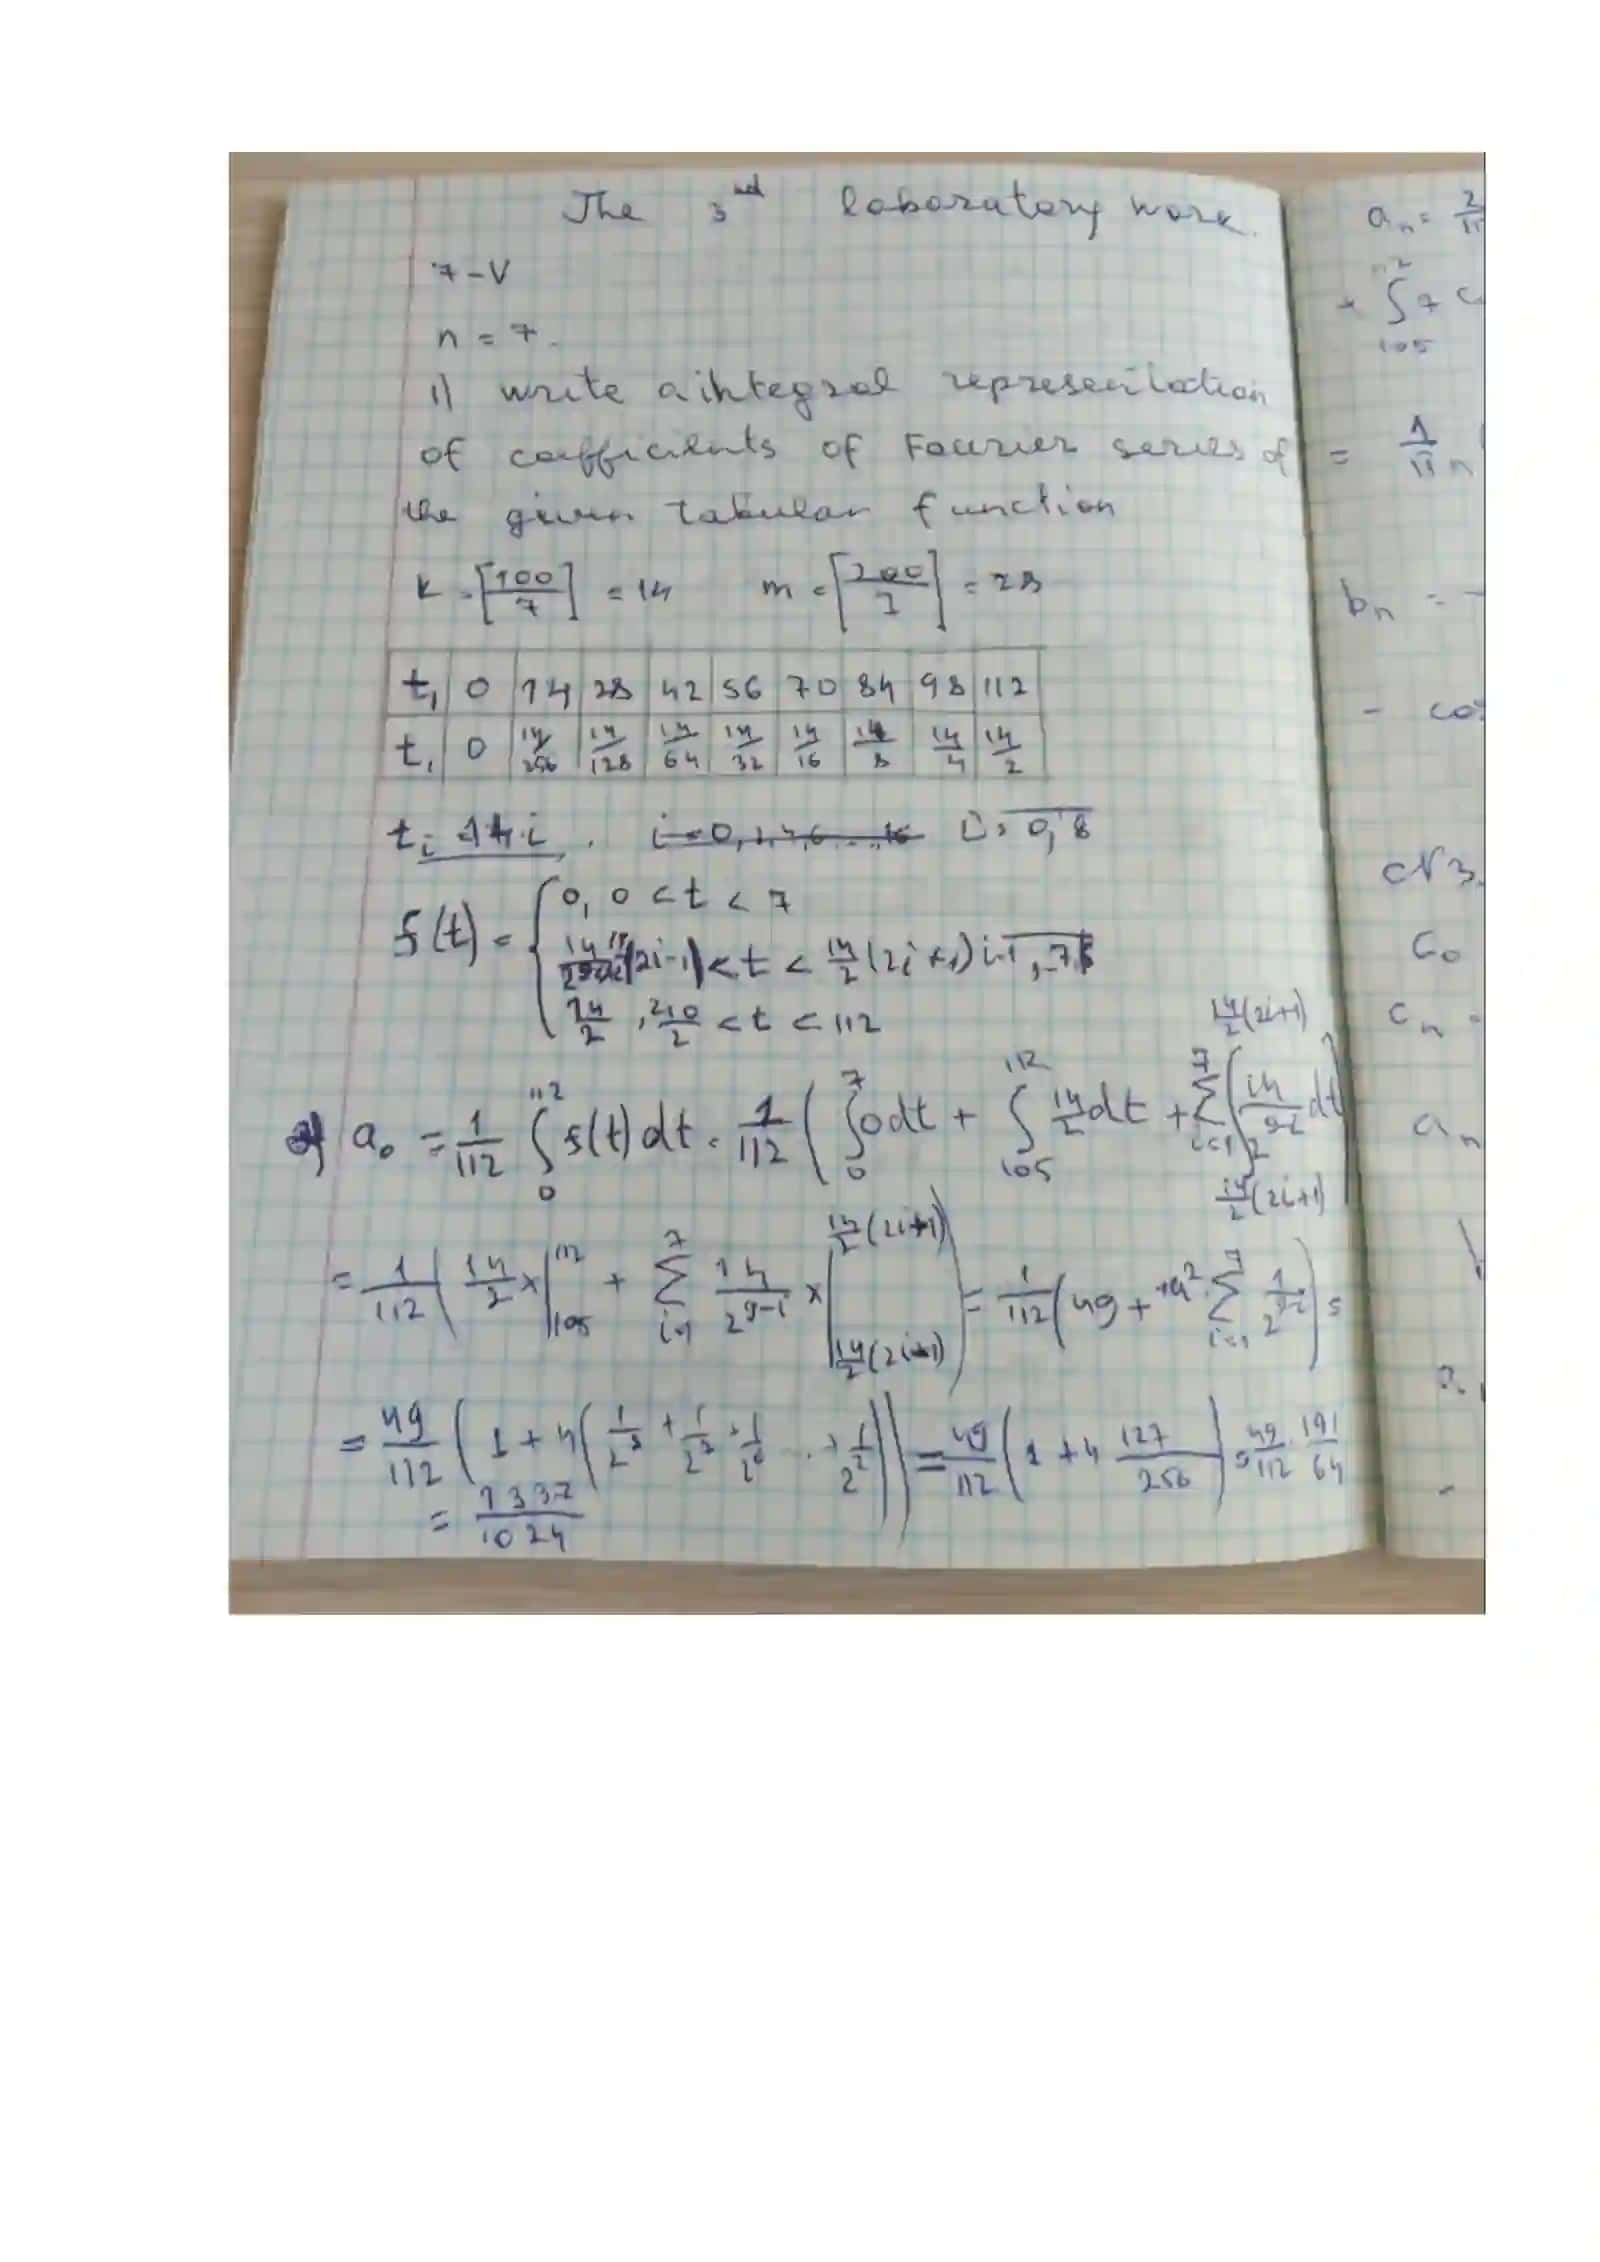 The 3rd laboratory work.
7-V
n = 7.
1) write a integral representation
of coefficients of Fourier series of
the given tabular function
k = [100/7] = 14 m = [200/7] = 28
t₁ 0 14 28 42 56 70 84 98 112
t₁ 0 14/256 14/128 14/64 14/32 14/16 14/8 14/4 14/2
tᵢ = 14·i. i = 0,8
f(t) = { 0, 0 < t < 7
(2i-1) < t < 14/2 (2i+1) i=1,7
14/2, 210/2 < t < 112
a₀ = 1/112 ∫₀¹¹² f(t)dt = 1/112 ( ∫₀⁷ 0dt + ∫₁₀₅¹¹² 14/2 dt + Σᵢ₌₁⁷ ∫ 14/2⁹⁻ⁱ dt 14/2(2i+1) 14/2(2i+1)
= 1/112 ( 14/2 x |₁₀₅¹¹² + Σᵢ₌₁⁷ 14/2⁹⁻ⁱ x | 14/2(2i+1) 14/2(2i-1) ) = 1/112 ( 49 + 14² Σᵢ₌₁⁷ 1/2⁹⁻ⁱ ) =
= 49/112 ( 1 + 4 ( 1/2⁸ + 1/2⁷ + 1/2⁶ ... + 1/2² )) = 49/112 ( 1 + 4 127/256 ) = 49/112 · 191/64
= 1337/1024
aₙ =
∫ 7
105
= 1/π n
bₙ = -
- cos
N3.
c₀
cₙ =
aₙ